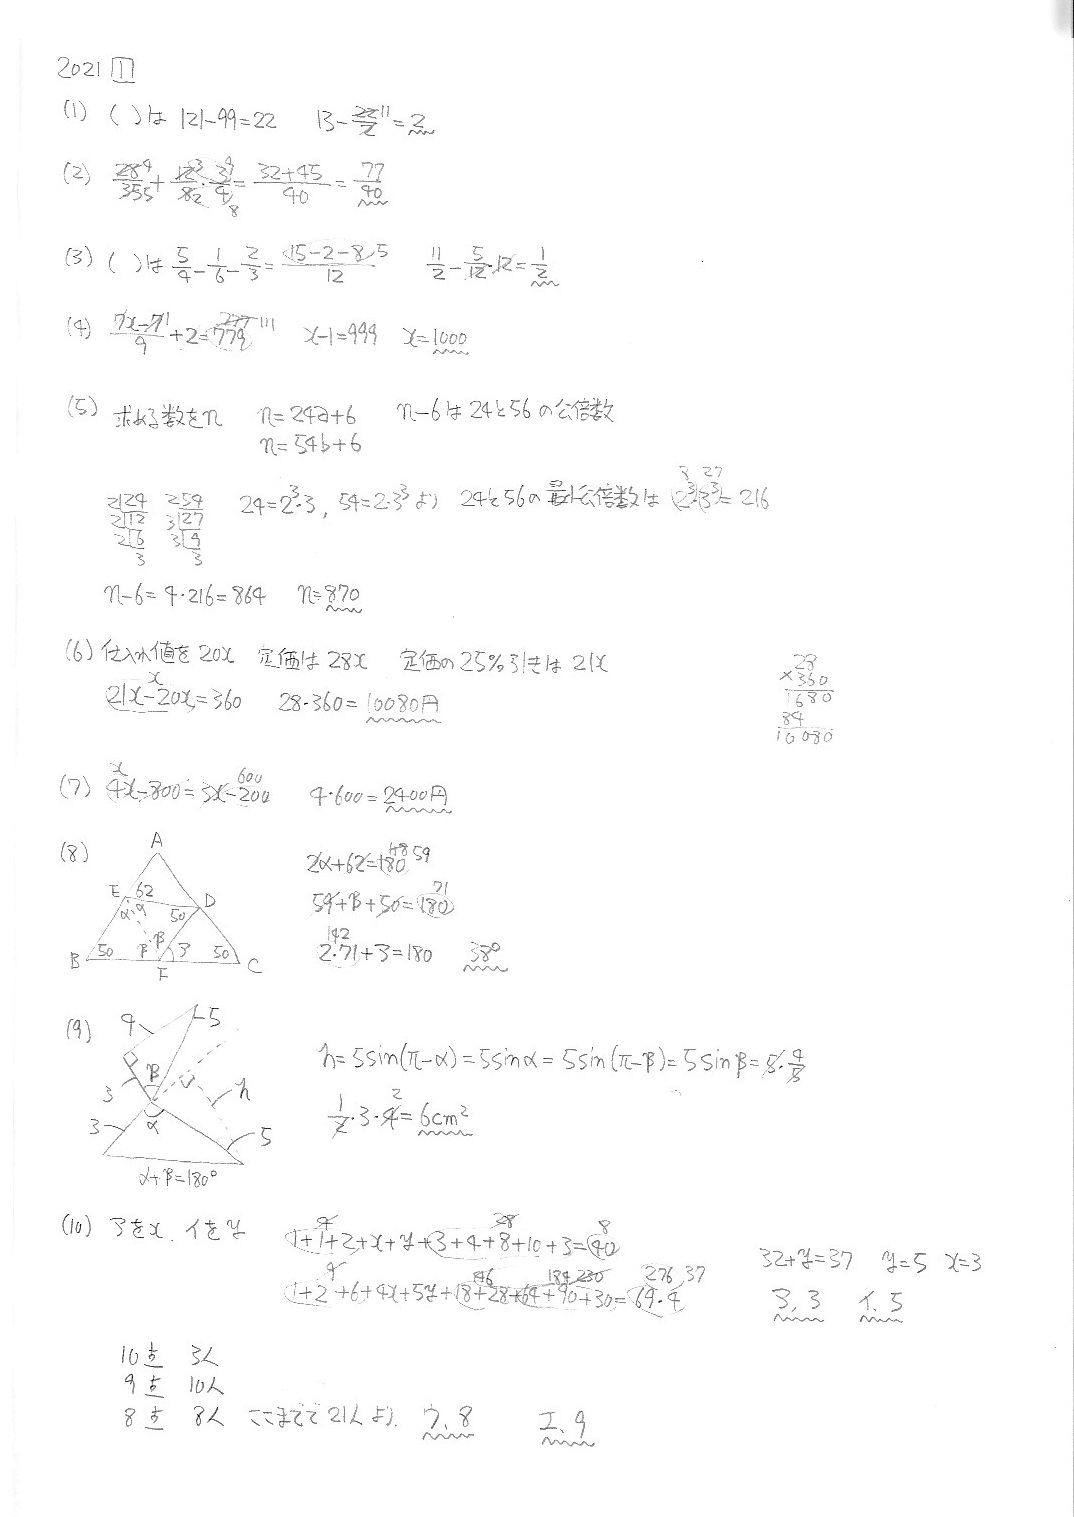 2021 1
(1) ( )は 121-99=22 13-22/2 11=2
(2) 28 4/35 5+12 3/8 2・3 9/4 8=32+45/40=77/40
(3) ( )は 5/4-1/6-2/3=15-2-8 5/12 11/2-5/12・12=1/2
(4) 7x-7 1/9+2=779 777 111 x-1=999 x=1000
(5) 求める数をn n=24a+6 n-6は24と56の公倍数
n=54b+6
2 24 2 54 24=2³・3, 54=2・3³より 24と56の最小公倍数は 2³・3³=216 8 27
2 12 3 27
2 6 3 9
3 3
n-6=4・216=864 n=870
(6) 仕入れ値を20x 定価は28x 定価の25%引きは21x
21x-20x=360 x 28・360=10080円
28
×360
1680
84
10080
(7) 4x-800=3x-200 x 600 4・600=2400円
(8) A
E 62 D
α α 50
B 50 β β 3 50 C
F
2α+62=180 118 59
59+β+50=180 71
2・71+3=180 142 38°
(9) 4 5
3 β h
3 α 5
α+β=180°
h=5sin(π-α)=5sinα=5sin(π-β)=5sinβ=5・4/5
1/2・3・4 2=6cm²
(10) アをx. イをy
1+1+2+x+y+3+4+8+10+3=40 4 28 8
1+2+6+4x+5y+18+28+64+90+30=69・4 9 46 184 230 276 37
32+y=37 y=5 x=3
ア. 3 イ. 5
10点 3人
9点 10人
8点 8人 ここまでで21人より. ウ. 8 エ. 9